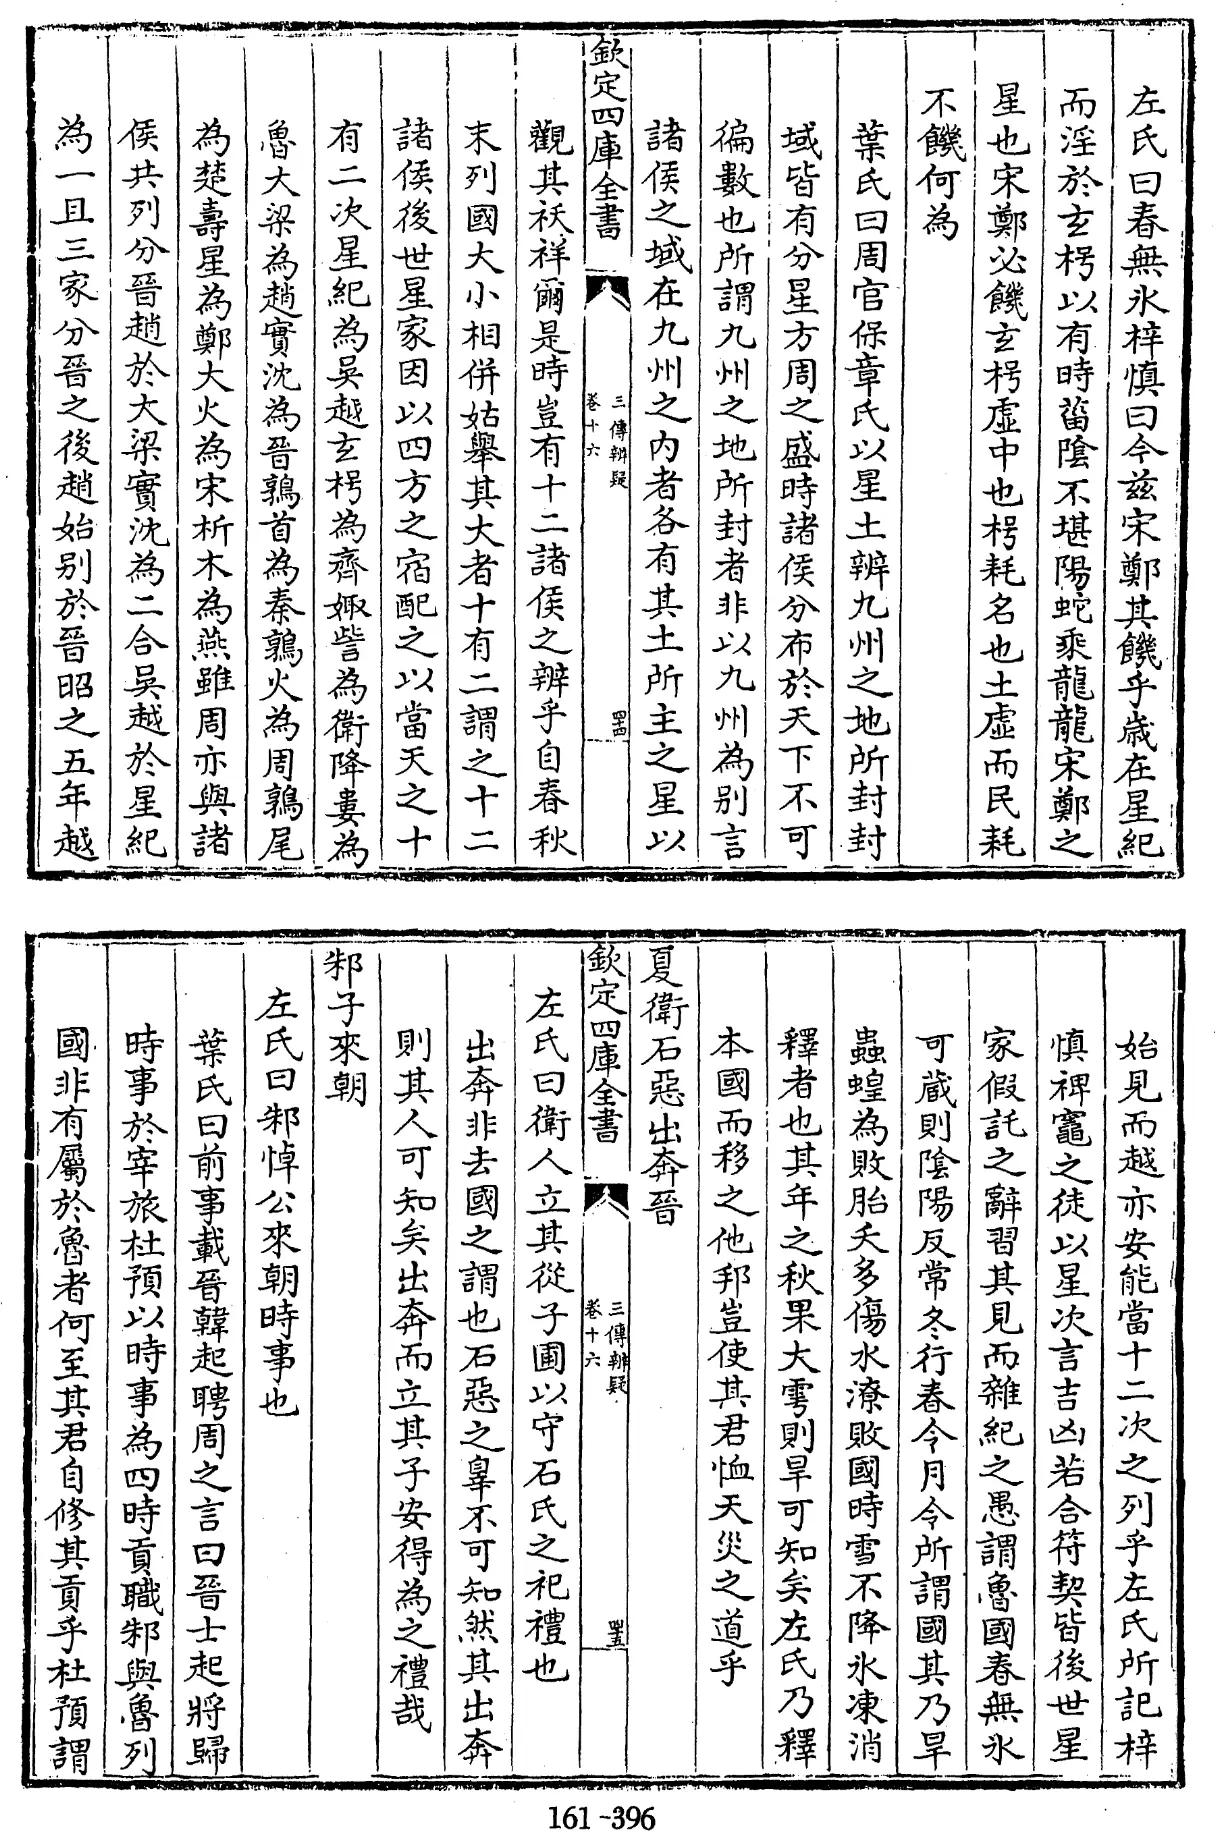 左氏曰春無氷梓慎曰今兹宋鄭其饑乎歳在星紀
而淫於玄枵以有時菑陰不堪陽蛇乘龍龍宋鄭之
星也宋鄭必饑玄枵虛中也枵耗名也土虛而民耗
不饑何為
葉氏曰周官保章氏以星土辨九州之地所封封
域皆有分星方周之盛時諸侯分布於天下不可
徧數也所謂九州之地所封者非以九州為别言
諸侯之域在九州之内者各有其土所主之星以
欽定四庫全書
三傳辨疑
卷十六
四十四
觀其祅祥爾是時豈有十二諸侯之辨乎自春秋
末列國大小相併姑舉其大者十有二謂之十二
諸侯後世星家因以四方之宿配之以當天之十
有二次星紀為吳越玄枵為齊娵訾為衛降婁為
魯大梁為趙實沈為晉鶉首為秦鶉火為周鶉尾
為楚壽星為鄭大火為宋析木為燕雖周亦與諸
侯共列分晉趙於大梁實沈為二合吳越於星紀
為一且三家分晉之後趙始别於晉昭之五年越
始見而越亦安能當十二次之列乎左氏所記梓
慎禆竈之徒以星次言吉凶若合符契皆後世星
家假託之辭習其見而雜紀之愚謂魯國春無氷
可藏則陰陽反常冬行春令月令所謂國其乃旱
蟲蝗為敗胎夭多傷水潦敗國時雪不降氷凍消
釋者也其年之秋果大雩則旱可知矣左氏乃釋
本國而移之他邦豈使其君恤天災之道乎
夏衛石惡出奔晉
欽定四庫全書
三傳辨疑
卷十六
四十五
左氏曰衛人立其從子圃以守石氏之祀禮也
出奔非去國之謂也石惡之辠不可知然其出奔
則其人可知矣出奔而立其子安得為之禮哉
邾子來朝
左氏曰邾悼公來朝時事也
葉氏曰前事載晉韓起聘周之言曰晉士起將歸
時事於宰旅杜預以時事為四時貢職邾與魯列
國非有屬於魯者何至其君自修其貢乎杜預謂
161-396